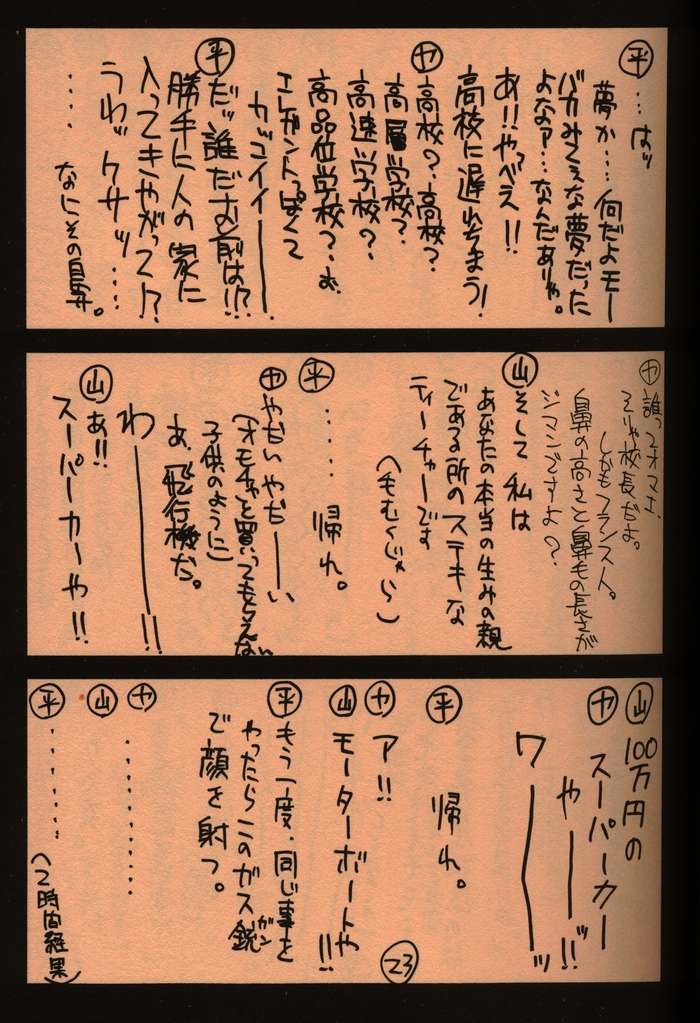 平 …はッ
夢か…何だよモー
バカみてぇな夢だった
よなァ…なんだありゃ。
あ!!やっべえ!!
高校に遅れそまう!
ヤ 高校?高校?
高層学校?
高速学校?
高品位学校?お、
エレガントっぽくて
カッコイイ――――。
平 だッ誰だお前は!?
勝手に人の家に
入ってきやがって!?
うわッケサッ……
…… なにその鼻。
ヤ 誰ってオマエ、
そりゃ校長だよ。
しかもフランス人。
鼻の高さと鼻毛の長さが
ジマンですよ?
山 そして私は
あなたの本当の生みの親
である所のステキな
ティーチャーです
(毛むくじゃら)
平 ……帰れ。
ヤ やだいやだーーい
(オモチャを買ってもらえない
子供のように)
あ、飛行機だ。
わ――――!!
山 あ!!
スーパーカーや!!
山 100万円の
ヤ スーパーカー
や―――ッ!!
ワ―――――ッ
平 帰れ。
ヤ ア!!
山 モーターボートや!!
平 もう一度、同じ事を
やったらこのガス銃
ガン
で顔を射つ。
ヤ ………
山
平 ………
(2時間経過)
23